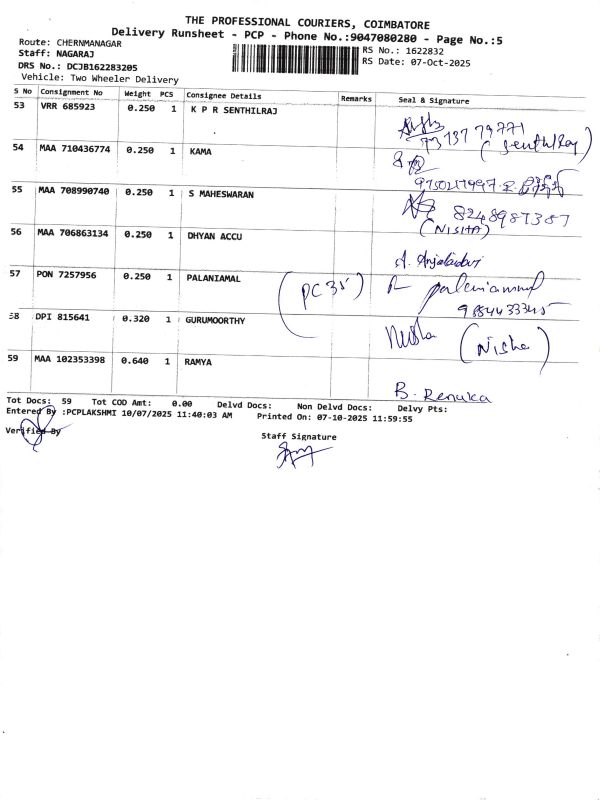 THE PROFESSIONAL COURIERS, COIMBATORE
Delivery Runsheet - PCP - Phone No.:9047080280 - Page No.:5
Route: CHERNMANAGAR
Staff: NAGARAJ
DRS No.: DCJB162283205
Vehicle: Two Wheeler Delivery
RS No.: 1622832
RS Date: 07-Oct-2025
S No Consignment No Weight PCS Consignee Details Remarks Seal & Signature
53 VRR 685923 0.250 1 K P R SENTHILRAJ
73737 79771
(Senthilraj)
54 MAA 710436774 0.250 1 KAMA
55 MAA 708990740 0.250 1 S MAHESWARAN
8248987387
(NISHA)
56 MAA 706863134 0.250 1 DHYAN ACCU
A. Anjaladevi
57 PON 7257956 0.250 1 PALANIAMAL
(PC 35) R palaniammal
58 DPI 815641 0.320 1 GURUMOORTHY
Nisha (Nisha)
59 MAA 102353398 0.640 1 RAMYA
B. Renuka
Tot Docs: 59 Tot COD Amt: 0.00 Delvd Docs: Non Delvd Docs: Delvy Pts:
Entered By :PCPLAKSHMI 10/07/2025 11:40:03 AM Printed On: 07-10-2025 11:59:55
Verified By
Staff Signature